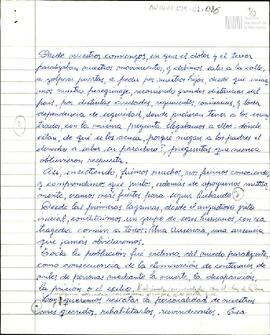 Desde nuestros comienzos, en que el dolor y el terror
paralizaban nuestros movimientos, y debimos salir a la calle,
a golpear puertas, a pedir por nuestros hijos, desde que inicia-
mos nuestro peregrinaje, recorriendo grandes distancias del
país, por distintas ciudades, regimientos, comisarías, y toda
dependencia de seguridad, donde pudieran tener a los secues-
trados con la misma pregunta llegábamos a ellos: dónde
están, de qué se los acusa, por qué niegan a los padres el
derecho a saber su paradero?, preguntas que nunca
obtuvieron respuesta.
Así, insistiendo fuimos muchos, nos fuimos conociendo
y comprendimos que juntos, además de apoyarnos mutua-
mente, éramos más fuertes para seguir luchando.
Desde las primeras lágrimas, desde el angustioso grito
inicial, constituimos un grupo de seres humanos con una
tragedia común a todos: Una Ausencia, una ausencia
que jamás olvidaremos.
Toda la población fue víctima del miedo paralizante,
como consecuencia de la eliminación de centenares de
miles de personas mediante la muerte, la desaparición,
la prisión o el exilio.
Conseguiremos rescatar la personalidad de nuestros
seres queridos, rehabilitarlos, reivindicarlos. Esta